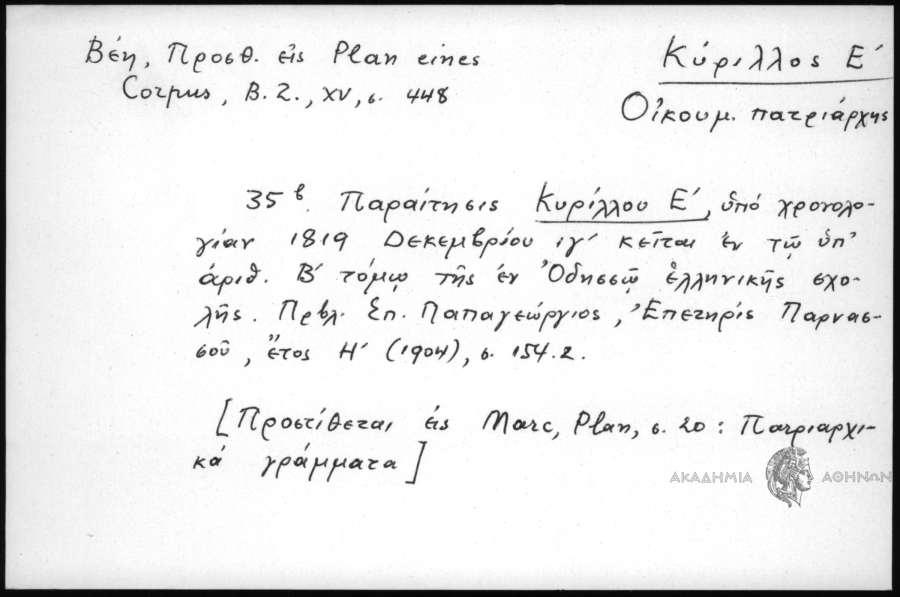 Βέη, Προσθ. εἰς Plan eines
Corpus, B. Z., XV, σ. 448
Κύριλλος Ε΄
Οἰκουμ. πατριάρχης
35 β. Παραίτησις Κυρίλλου Ε΄, ὑπό χρονολο-
γίαν 1819 Δεκεμβρίου ιγ΄ κεῖται ἐν τῷ ὑπ'
ἀριθ. Β΄ τόμῳ τῆς ἐν Ὀδησσῷ ἑλληνικῆς σχο-
λῆς. Πρβλ. Σπ. Παπαγεώργιος, Ἐπετηρίς Παρνασ-
σοῦ, ἔτος Η΄ (1904), σ. 154.2.
[Προστίθεται εἰς Marc, Plan, σ. 20: Πατριαρχι-
κά γράμματα]
ΑΚΑΔΗΜΙΑ ΑΘΗΝΩΝ